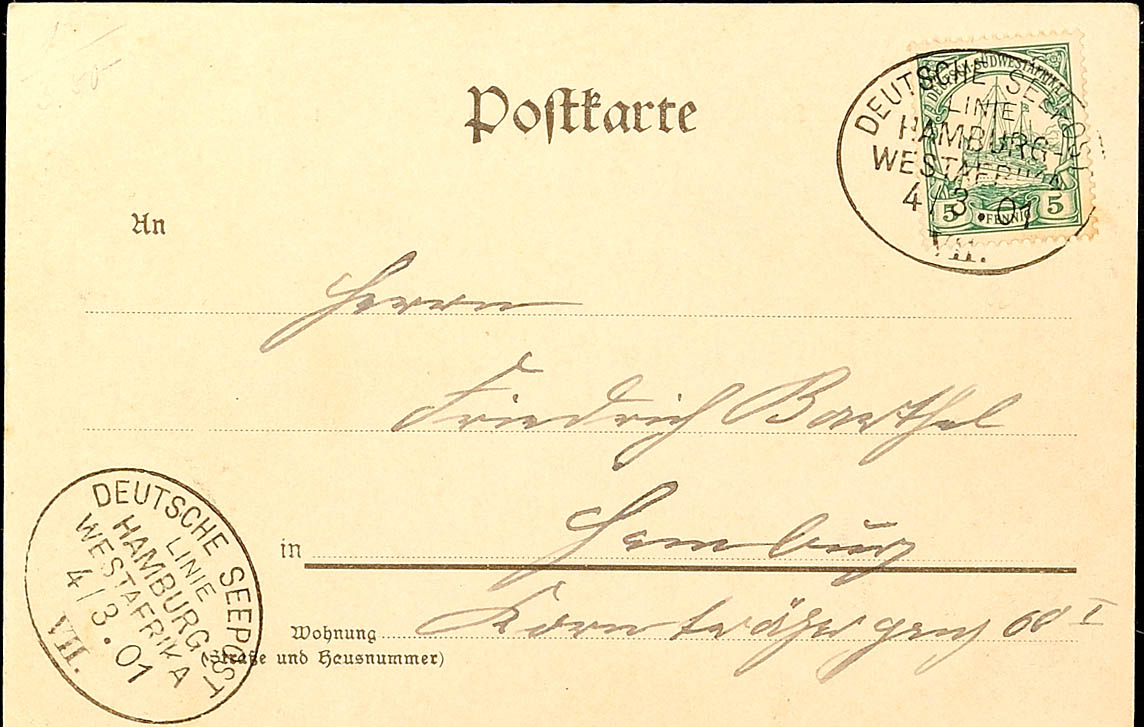 Postkarte
DEUTSCHE SEEPOST
LINIE
HAMBURG-
WESTAFRIKA
4/3.01
VII.
5 PFENNIG 5
An
Herrn
Friedrich Barthel
in Hamburg
Wohnung Kornträgergang 60 I
(Straße und Hausnummer)
DEUTSCHE SEEPOST
LINIE
HAMBURG-
WESTAFRIKA
4/3.01
VII.